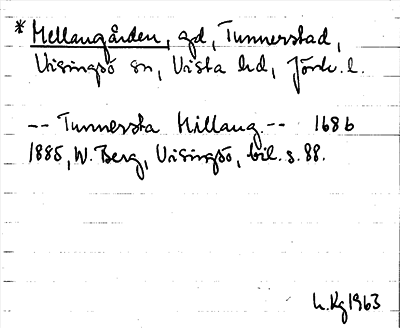 * Mellangården, gd, Tunnerstad,
Visingsö sn, Vista hd, Jönk. l.
-- Tunnersta Millang -- 1686
1885, W. Berg, Visingsö, bil. s. 88.
L. Kg 1963